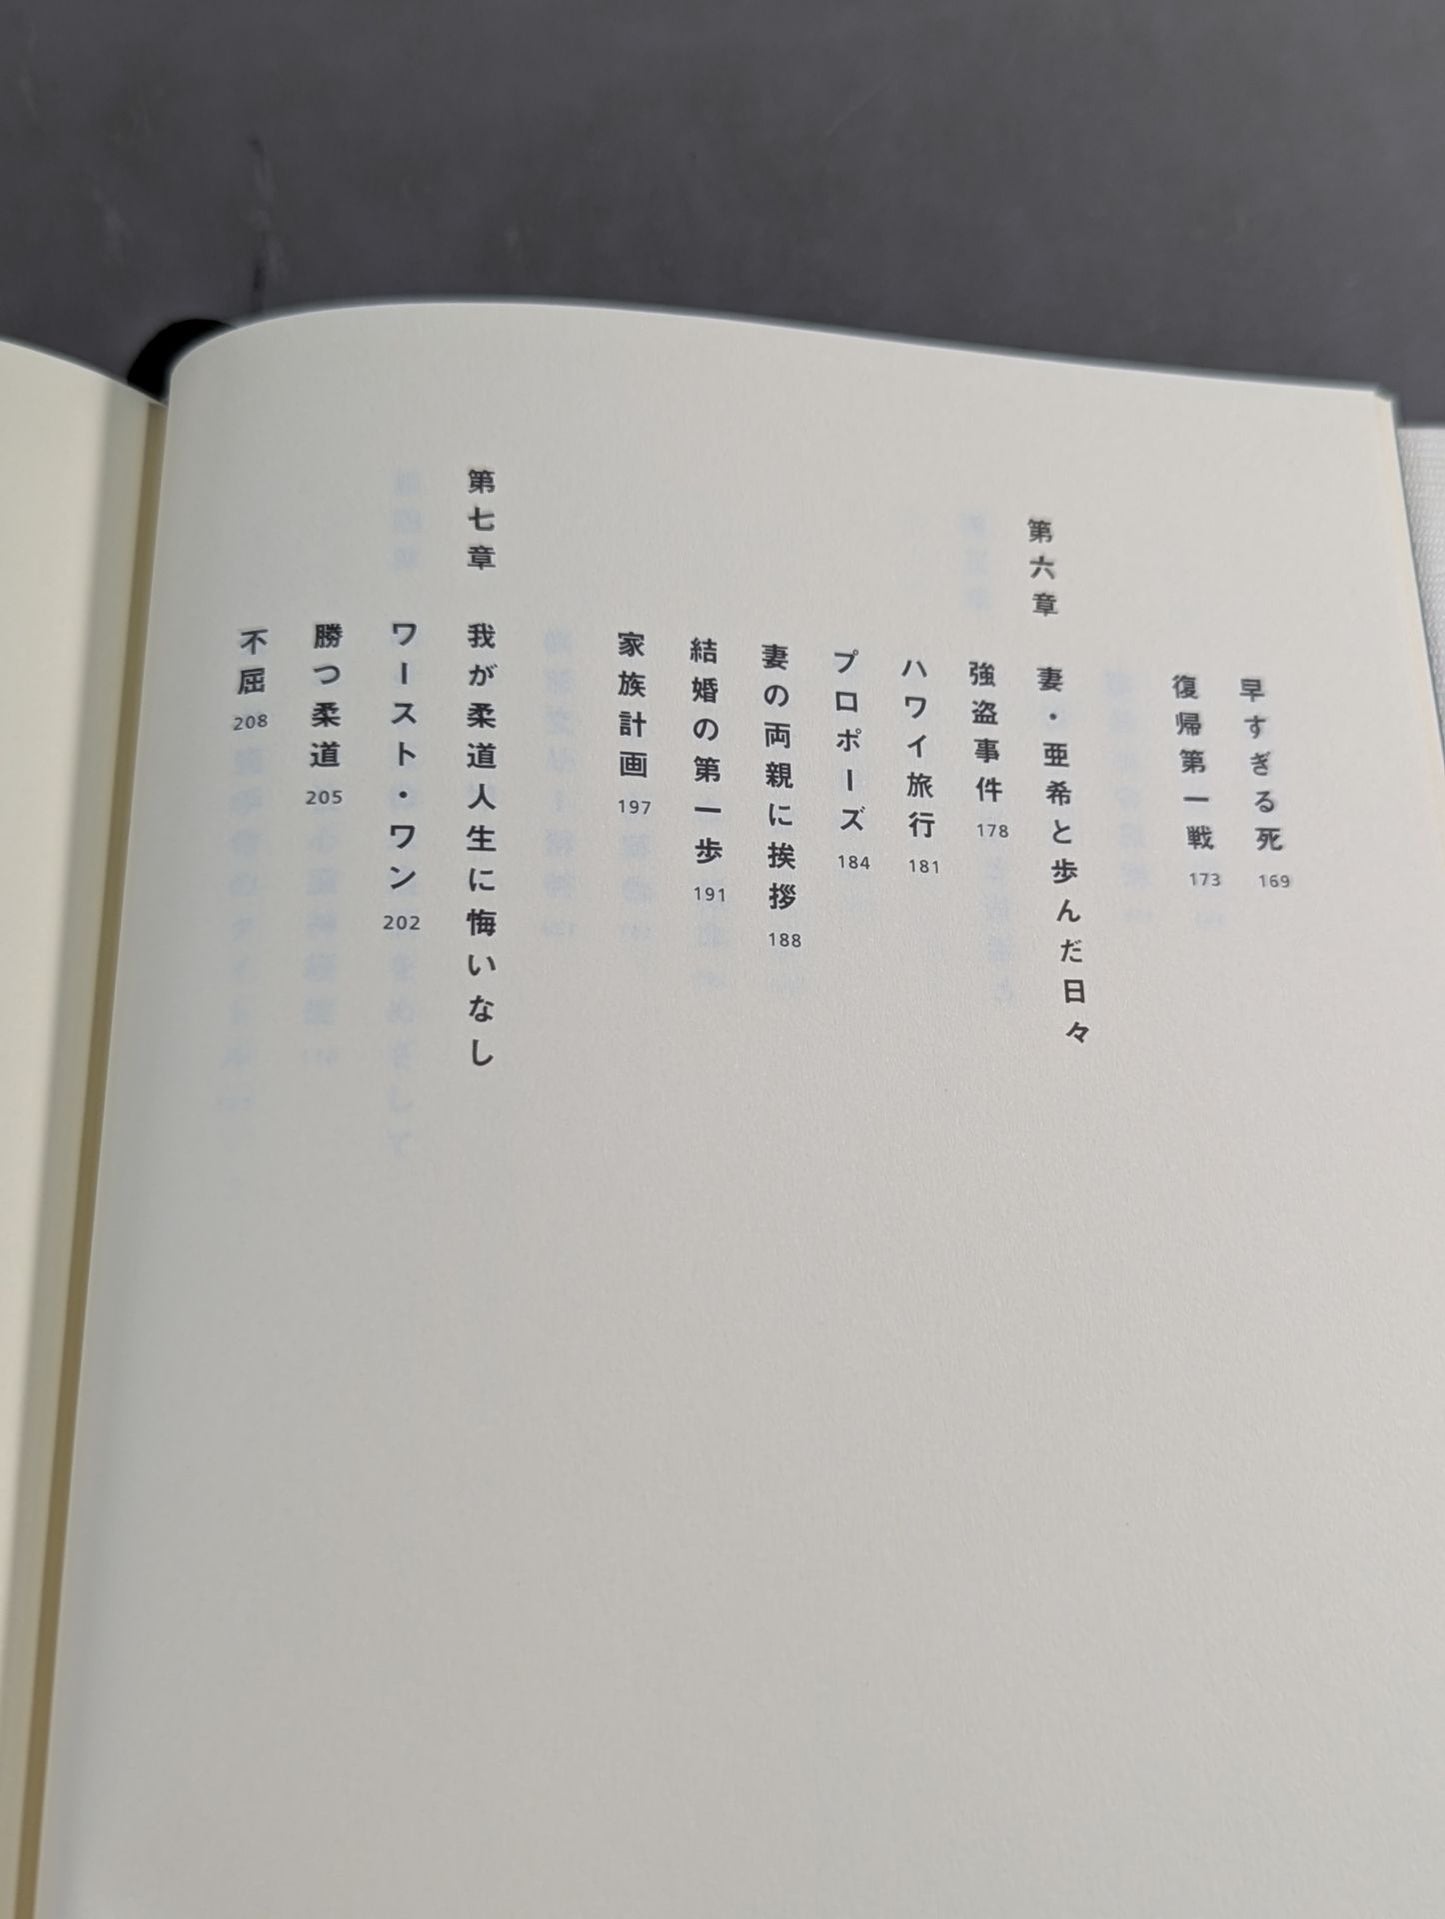 早すぎる死 169
復帰第一戦 173
第六章 妻・亜希と歩んだ日々
強盗事件 178
ハワイ旅行 181
プロポーズ 184
妻の両親に挨拶 188
結婚の第一歩 191
家族計画 197
第七章 我が柔道人生に悔いなし
ワースト・ワン 202
勝つ柔道 205
不屈 208